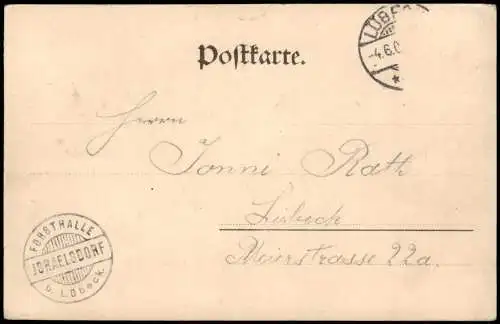 Postkarte.
LÜBEC
-4.6.0
*
Herrn
Jonni Rath
Lübeck
Meierstrasse 22a.
FORSTHALLE
ISRAELSDORF
b. Lübeck.